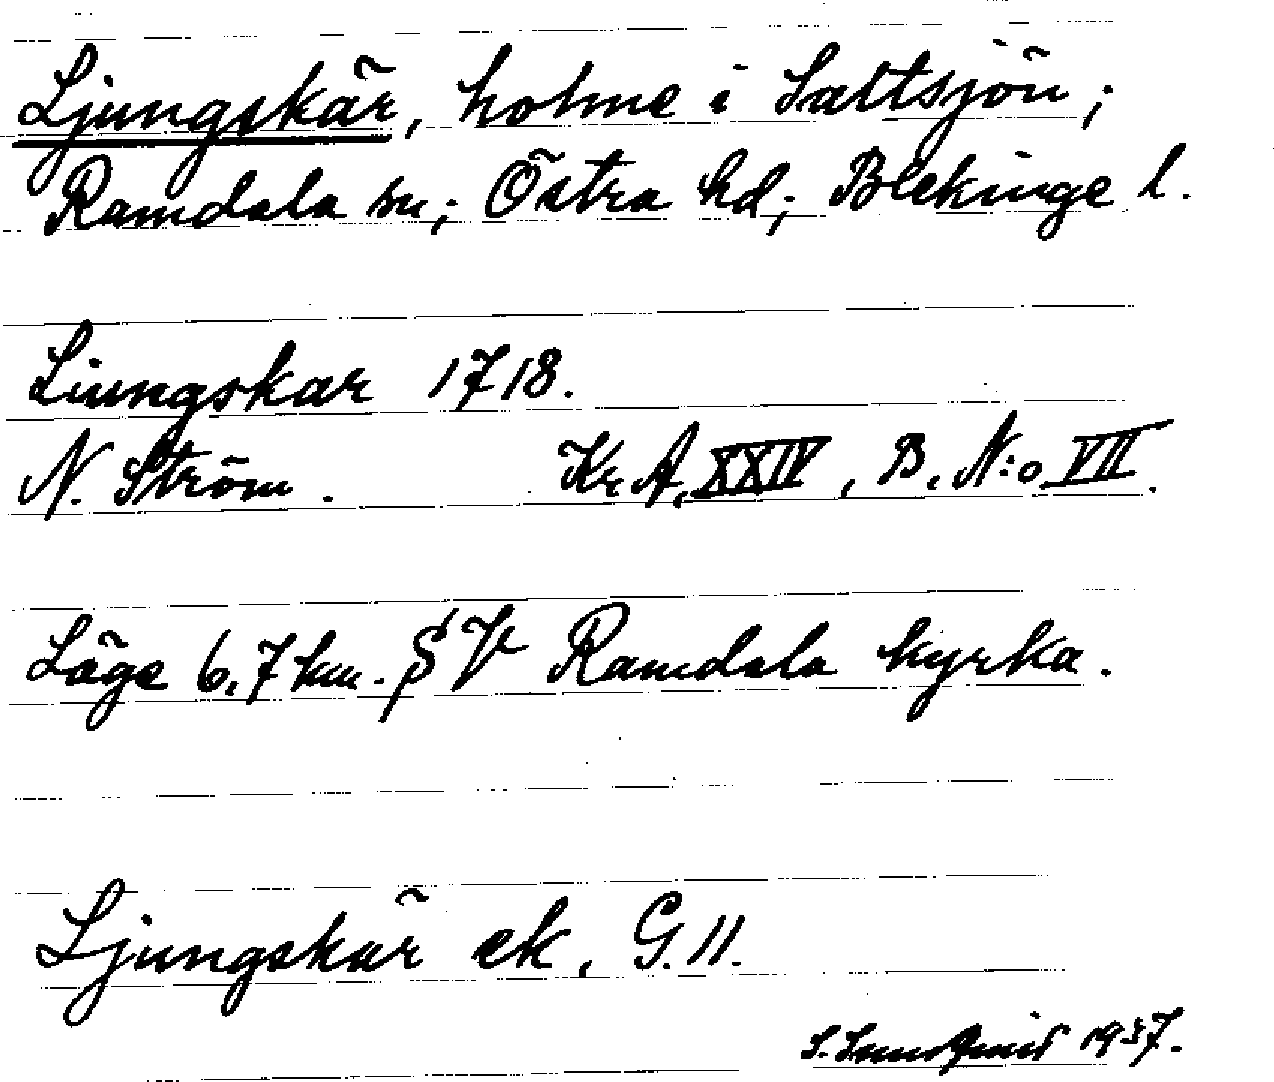 Ljungskär, holme i Saltsjön;
Ramdala sn; Östra hd; Blekinge l.
Liungskar 1718.
N. Ström. Kr. A. XXIV, B. N:o VII.
Läge 6,7 km. SV Ramdala kyrka.
Ljungskär ek. G. 11.
1937.